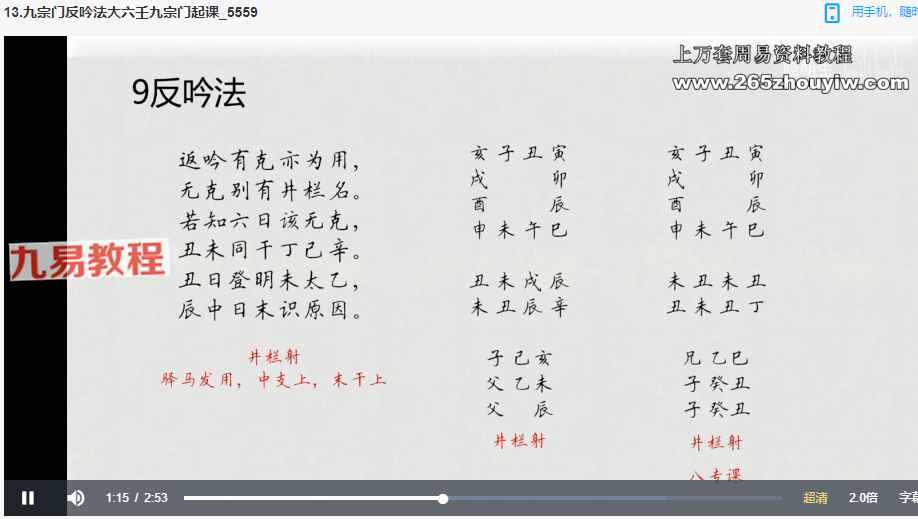 13.九宗门反吟法大六壬九宗门起课_5559
用手机，随时
上万套周易资料教程
www.265zhouyiw.com
9反吟法
返吟有克亦为用，
无克别有井栏名。
若知六日该无克，
丑未同干丁己辛。
丑日登明未太乙，
辰中日末识原因。
井栏射
驿马发用，中支上，末干上
九易教程
亥子丑寅
戌 卯
酉 辰
申未午巳
丑未戌辰
未丑辰辛
子己亥
父乙未
父 辰
井栏射
亥子丑寅
戌 卯
酉 辰
申未午巳
未丑未丑
丑未丑丁
兄乙巳
子癸丑
子癸丑
井栏射
八专课
1:15 / 2:53
超清
2.0倍
字幕